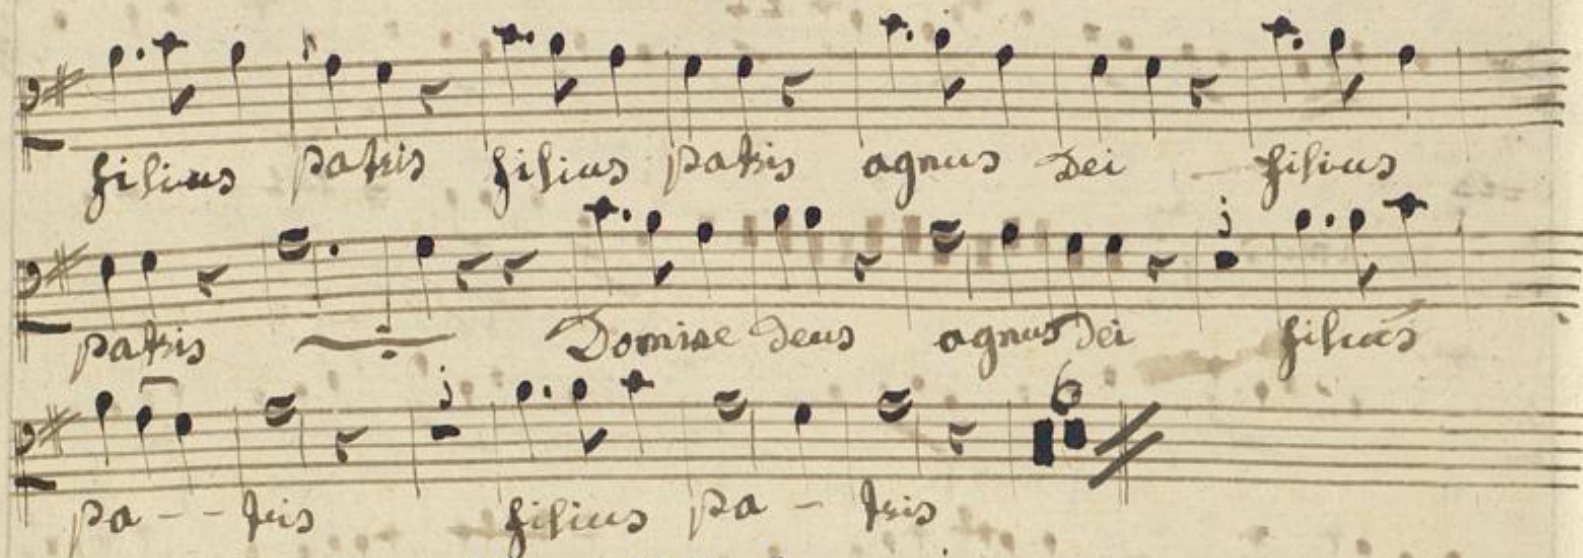 filius patris filius patris agnus Dei filius
patris Domine Deus agnus Dei filius
pa - - tris filius pa - tris
6